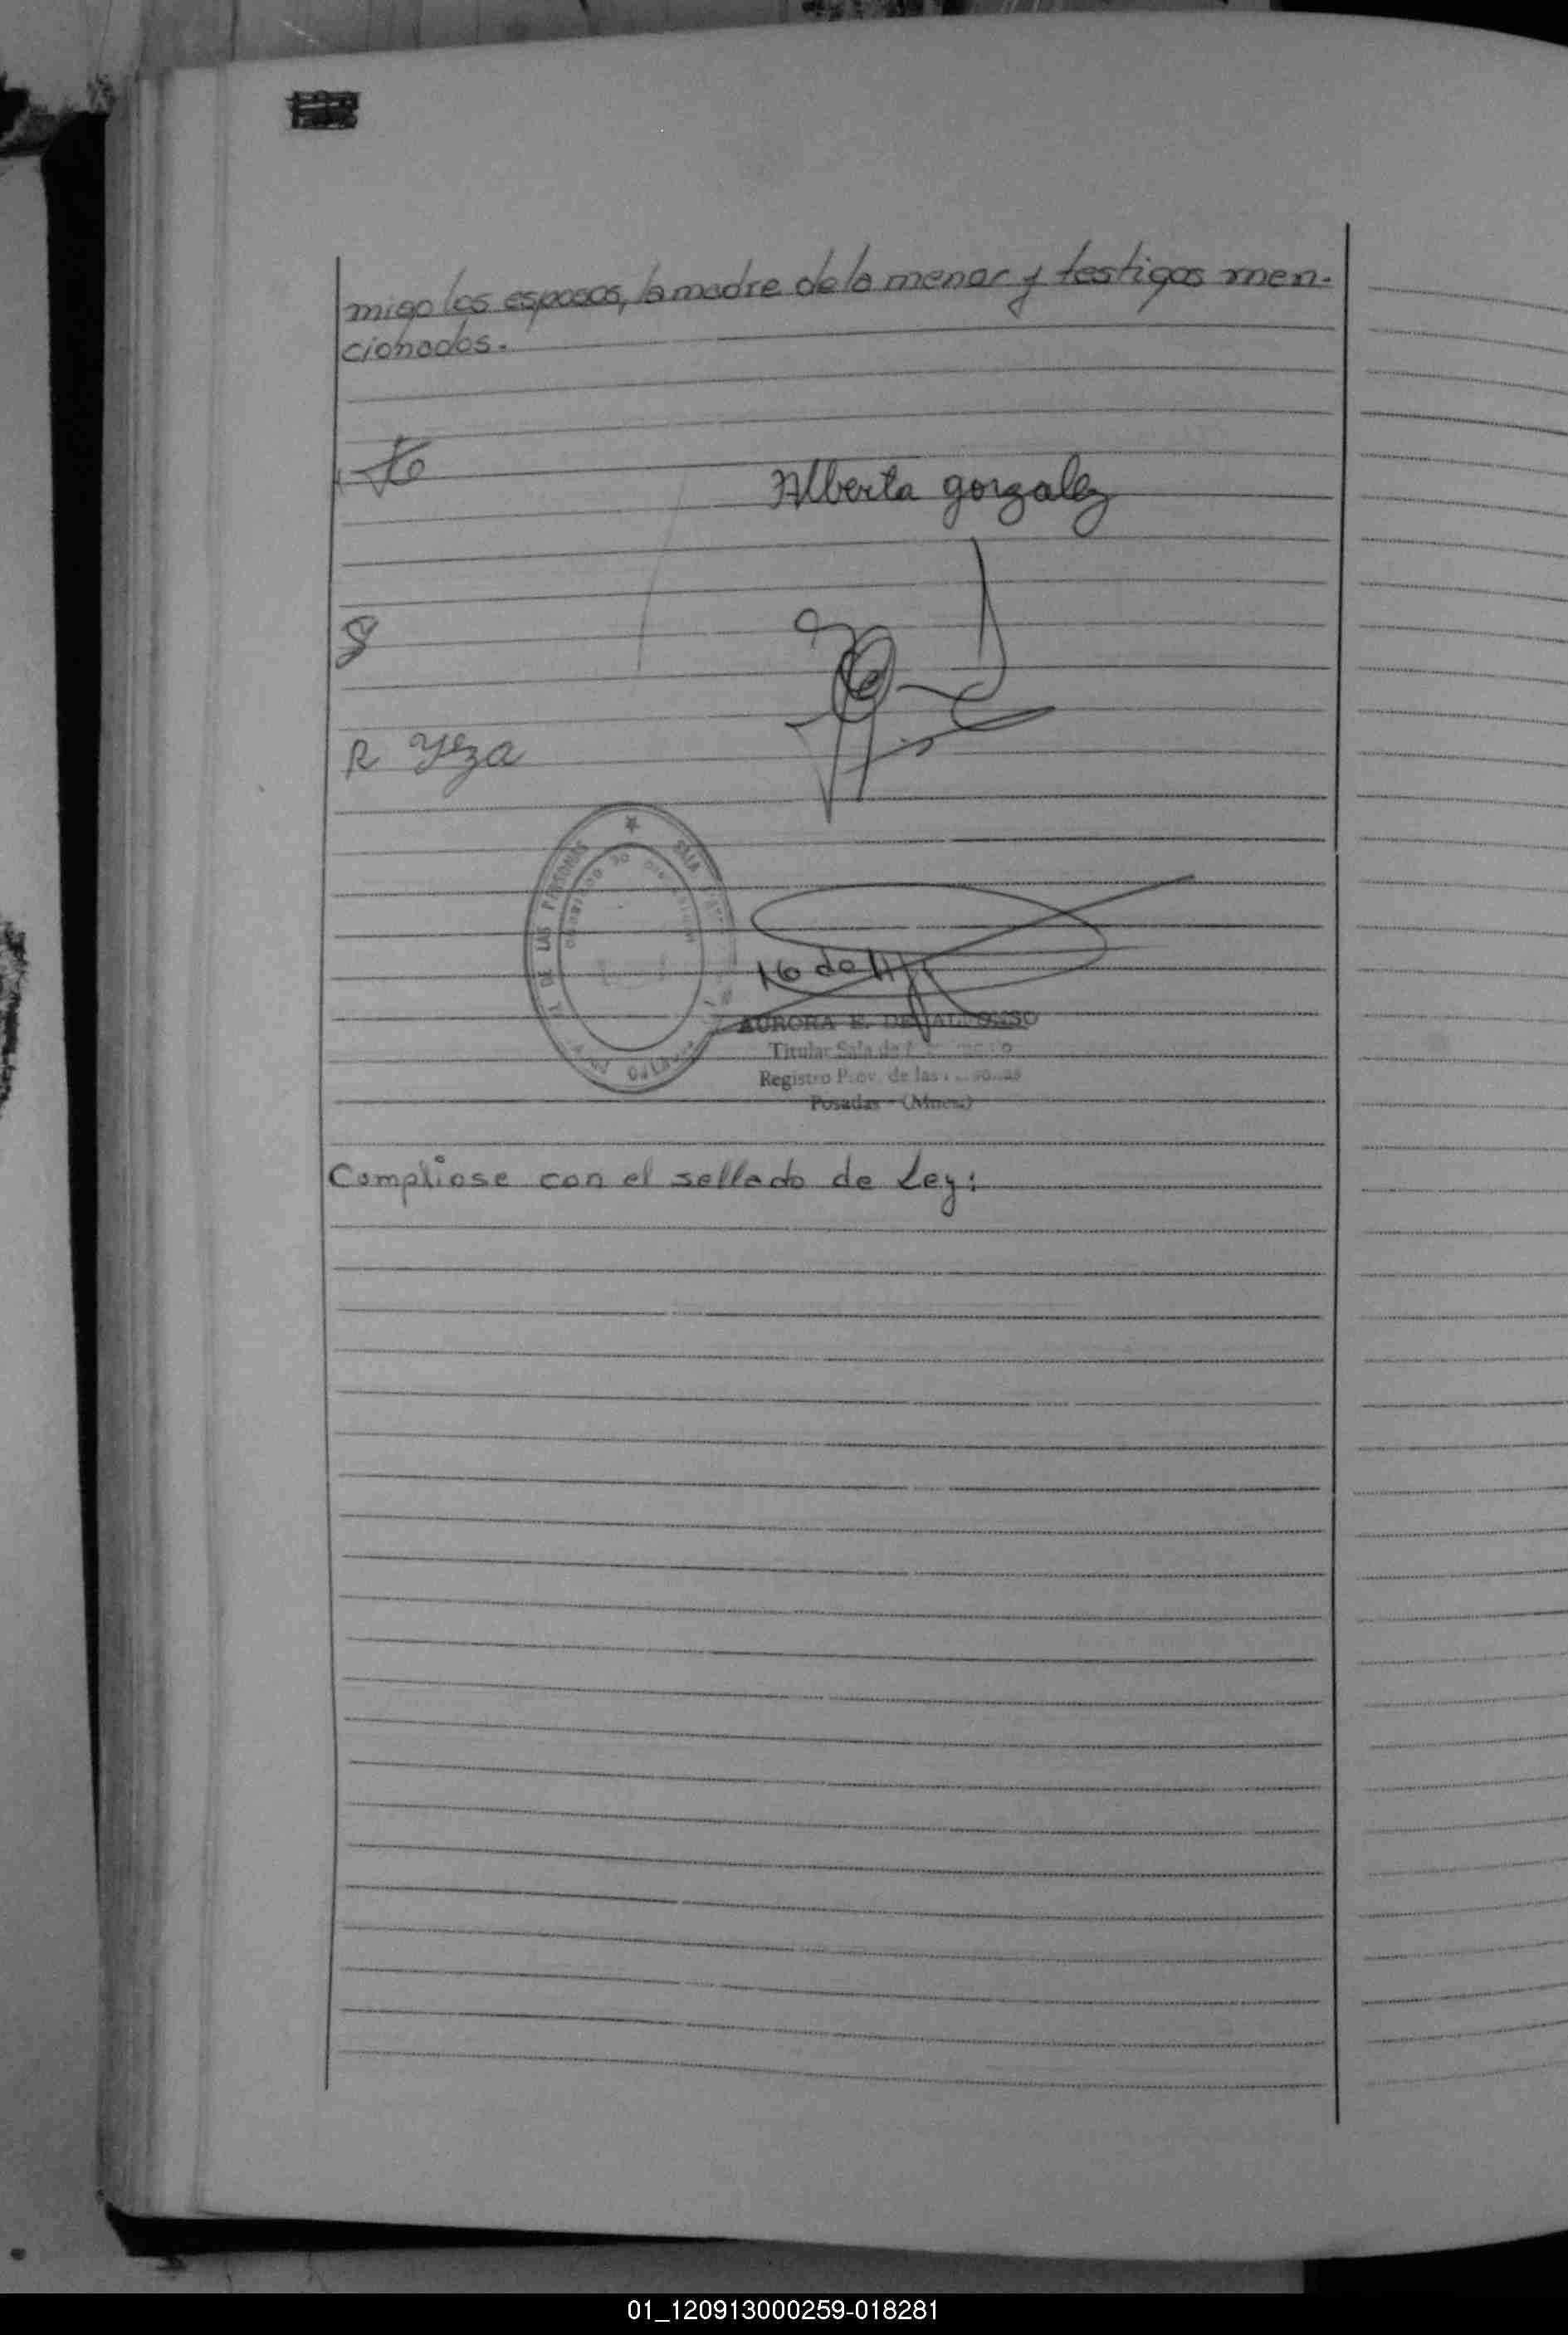 migo los esposos, la madre de la menor y testigos men-
cionados.
Alberta gonzalez
R Yza
DE LAS PERSONAS
SALA
AURORA E. DE ALFONSO
Titular Sala de
Registro Prov. de las
Posadas - (Mnes.)
Compliose con el sellado de Ley:
01_120913000259-018281